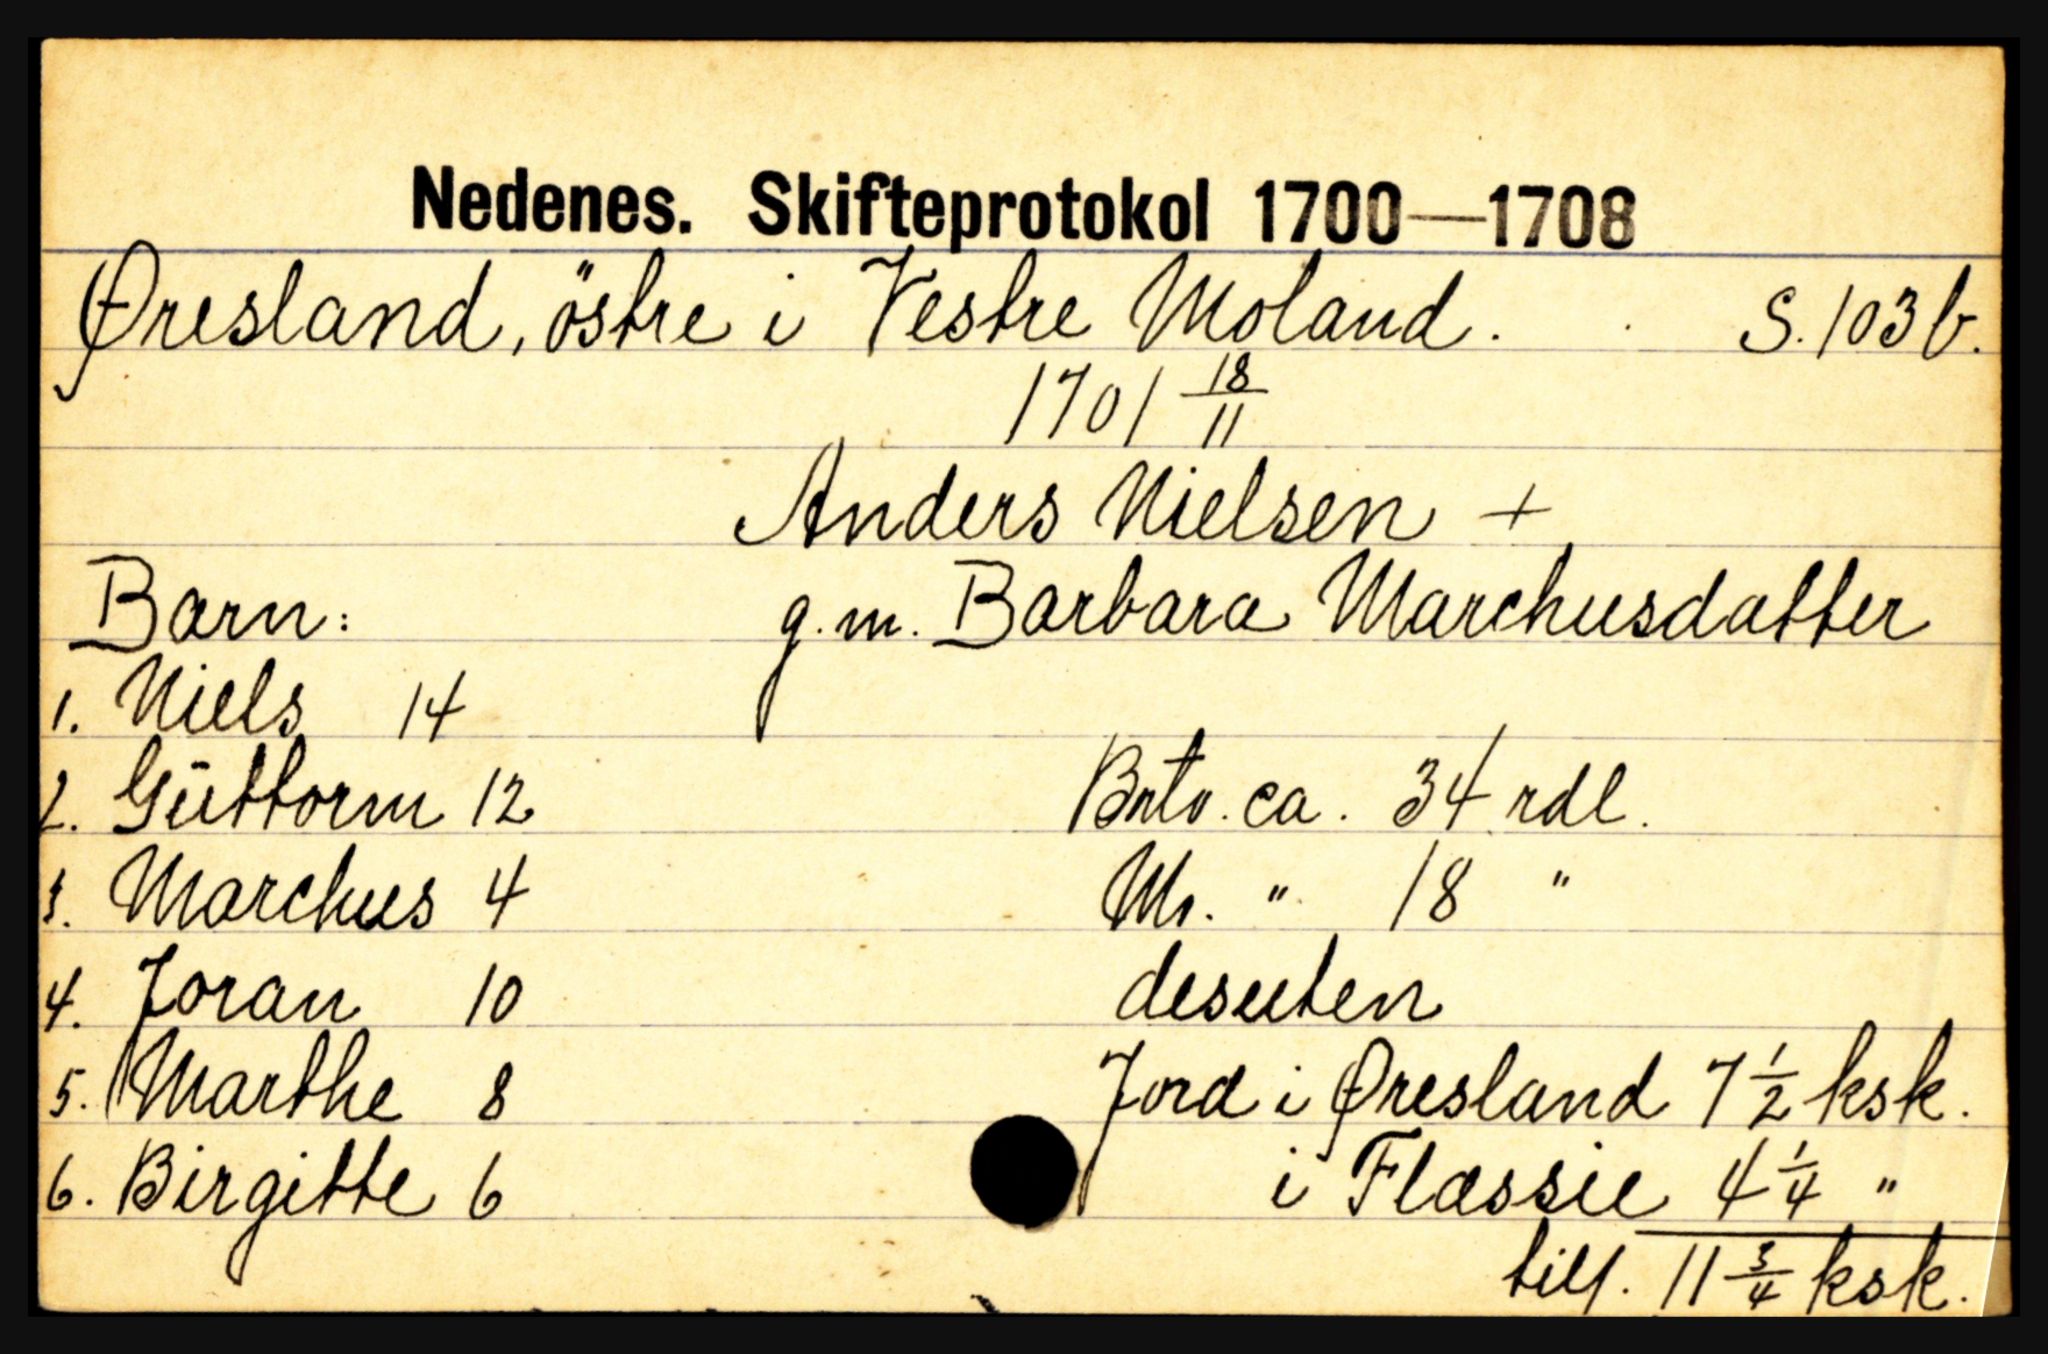 Nedenes. Skifteprotokol 1700—1708
Øresland, östre i Vestre Moland. S. 103 b.
1701 18/11
Anders Nielsen +
Barn: g.m. Barbara Marchusdatter
1. Niels 14
2. Güttorm 12 Brto. ca. 34 rdl.
3. Marchus 4 No. " 18 "
4. Joran 10 desuten
5. Marthe 8 Jord i Øresland 7 1/2 ksk.
6. Birgitte 6 i Flæssie 4 1/4 "
till. 11 3/4 ksk.